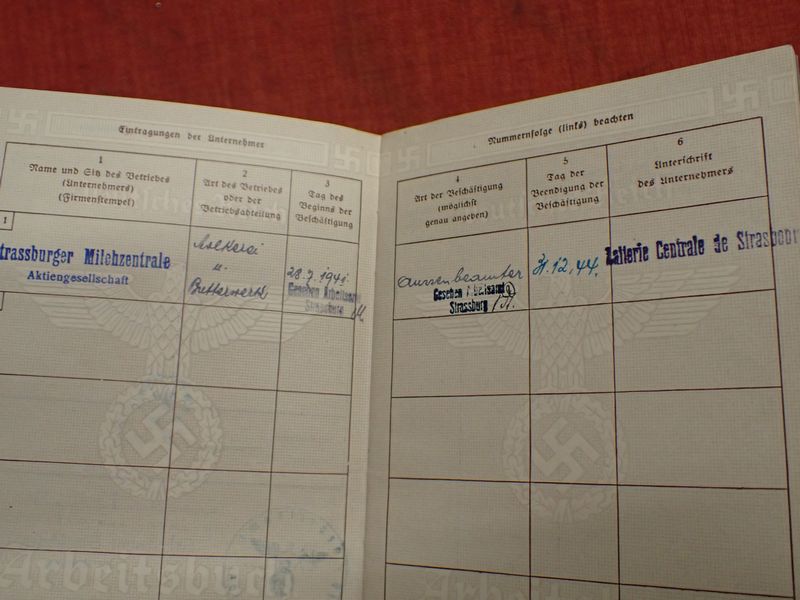 Eintragungen der Unternehmer
1
Name und Sitz des Betriebes
(Unternehmers)
(Firmenstempel)
2
Art des Betriebes
oder der
Betriebsabteilung
3
Tag des
Beginns der
Beschäftigung
1
trassburger Milchzentrale
Aktiengesellschaft
Molkerei
u.
Butterwerk
Gesehen Arbeitsamt
Strassburg
Arbeitsbuch
Nummernfolge (links) beachten
4
Art der Beschäftigung
(möglichst
genau angeben)
5
Tag der
Beendigung der
Beschäftigung
6
Unterschrift
des Unternehmers
aussenbeamter
Gesehen Arbeitsamt
Strassburg
31.12.44.
Laiterie Centrale de Strasbour
Arbeitsbuch